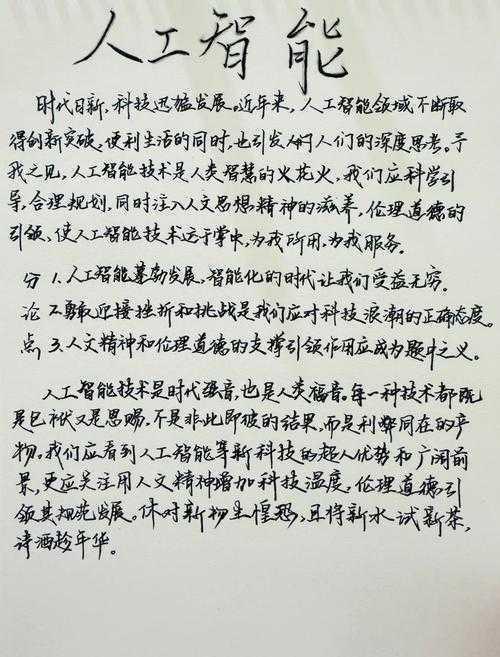 人工智能
时代日新,科技迅猛发展。近年来,人工智能领域不断取
得创新突破。便利生活的同时,也引发人们人们的深度思考。予
我之见,人工智能技术是人类智慧的火花火,我们应科学引
导,合理规划,同时注入人文思想精神的滋养,伦理道德的
引领,使人工智能技术运于掌中,为我所用,为我服务。
分 1.人工智能蓬勃发展,智能化的时代让我们受益无穷。
论 2.勇敢迎接挫折和挑战是我们应对科技浪潮的正确态度。
点 3.人文精神和伦理道德的支撑引领作用应成为题中之义。
人工智能技术是时代强音,也是人类福音。每一种技术都既
是包袱又是恩赐,不是非此即彼的结果,而是利弊同在的产
物。我们应看到人工智能等新科技的超人优势和广阔前
景,更应关注用人文精神增加科技温度。伦理道德引
领其规范发展。休对新物生惶恐,且将新水试新茶,
诗酒趁年华。